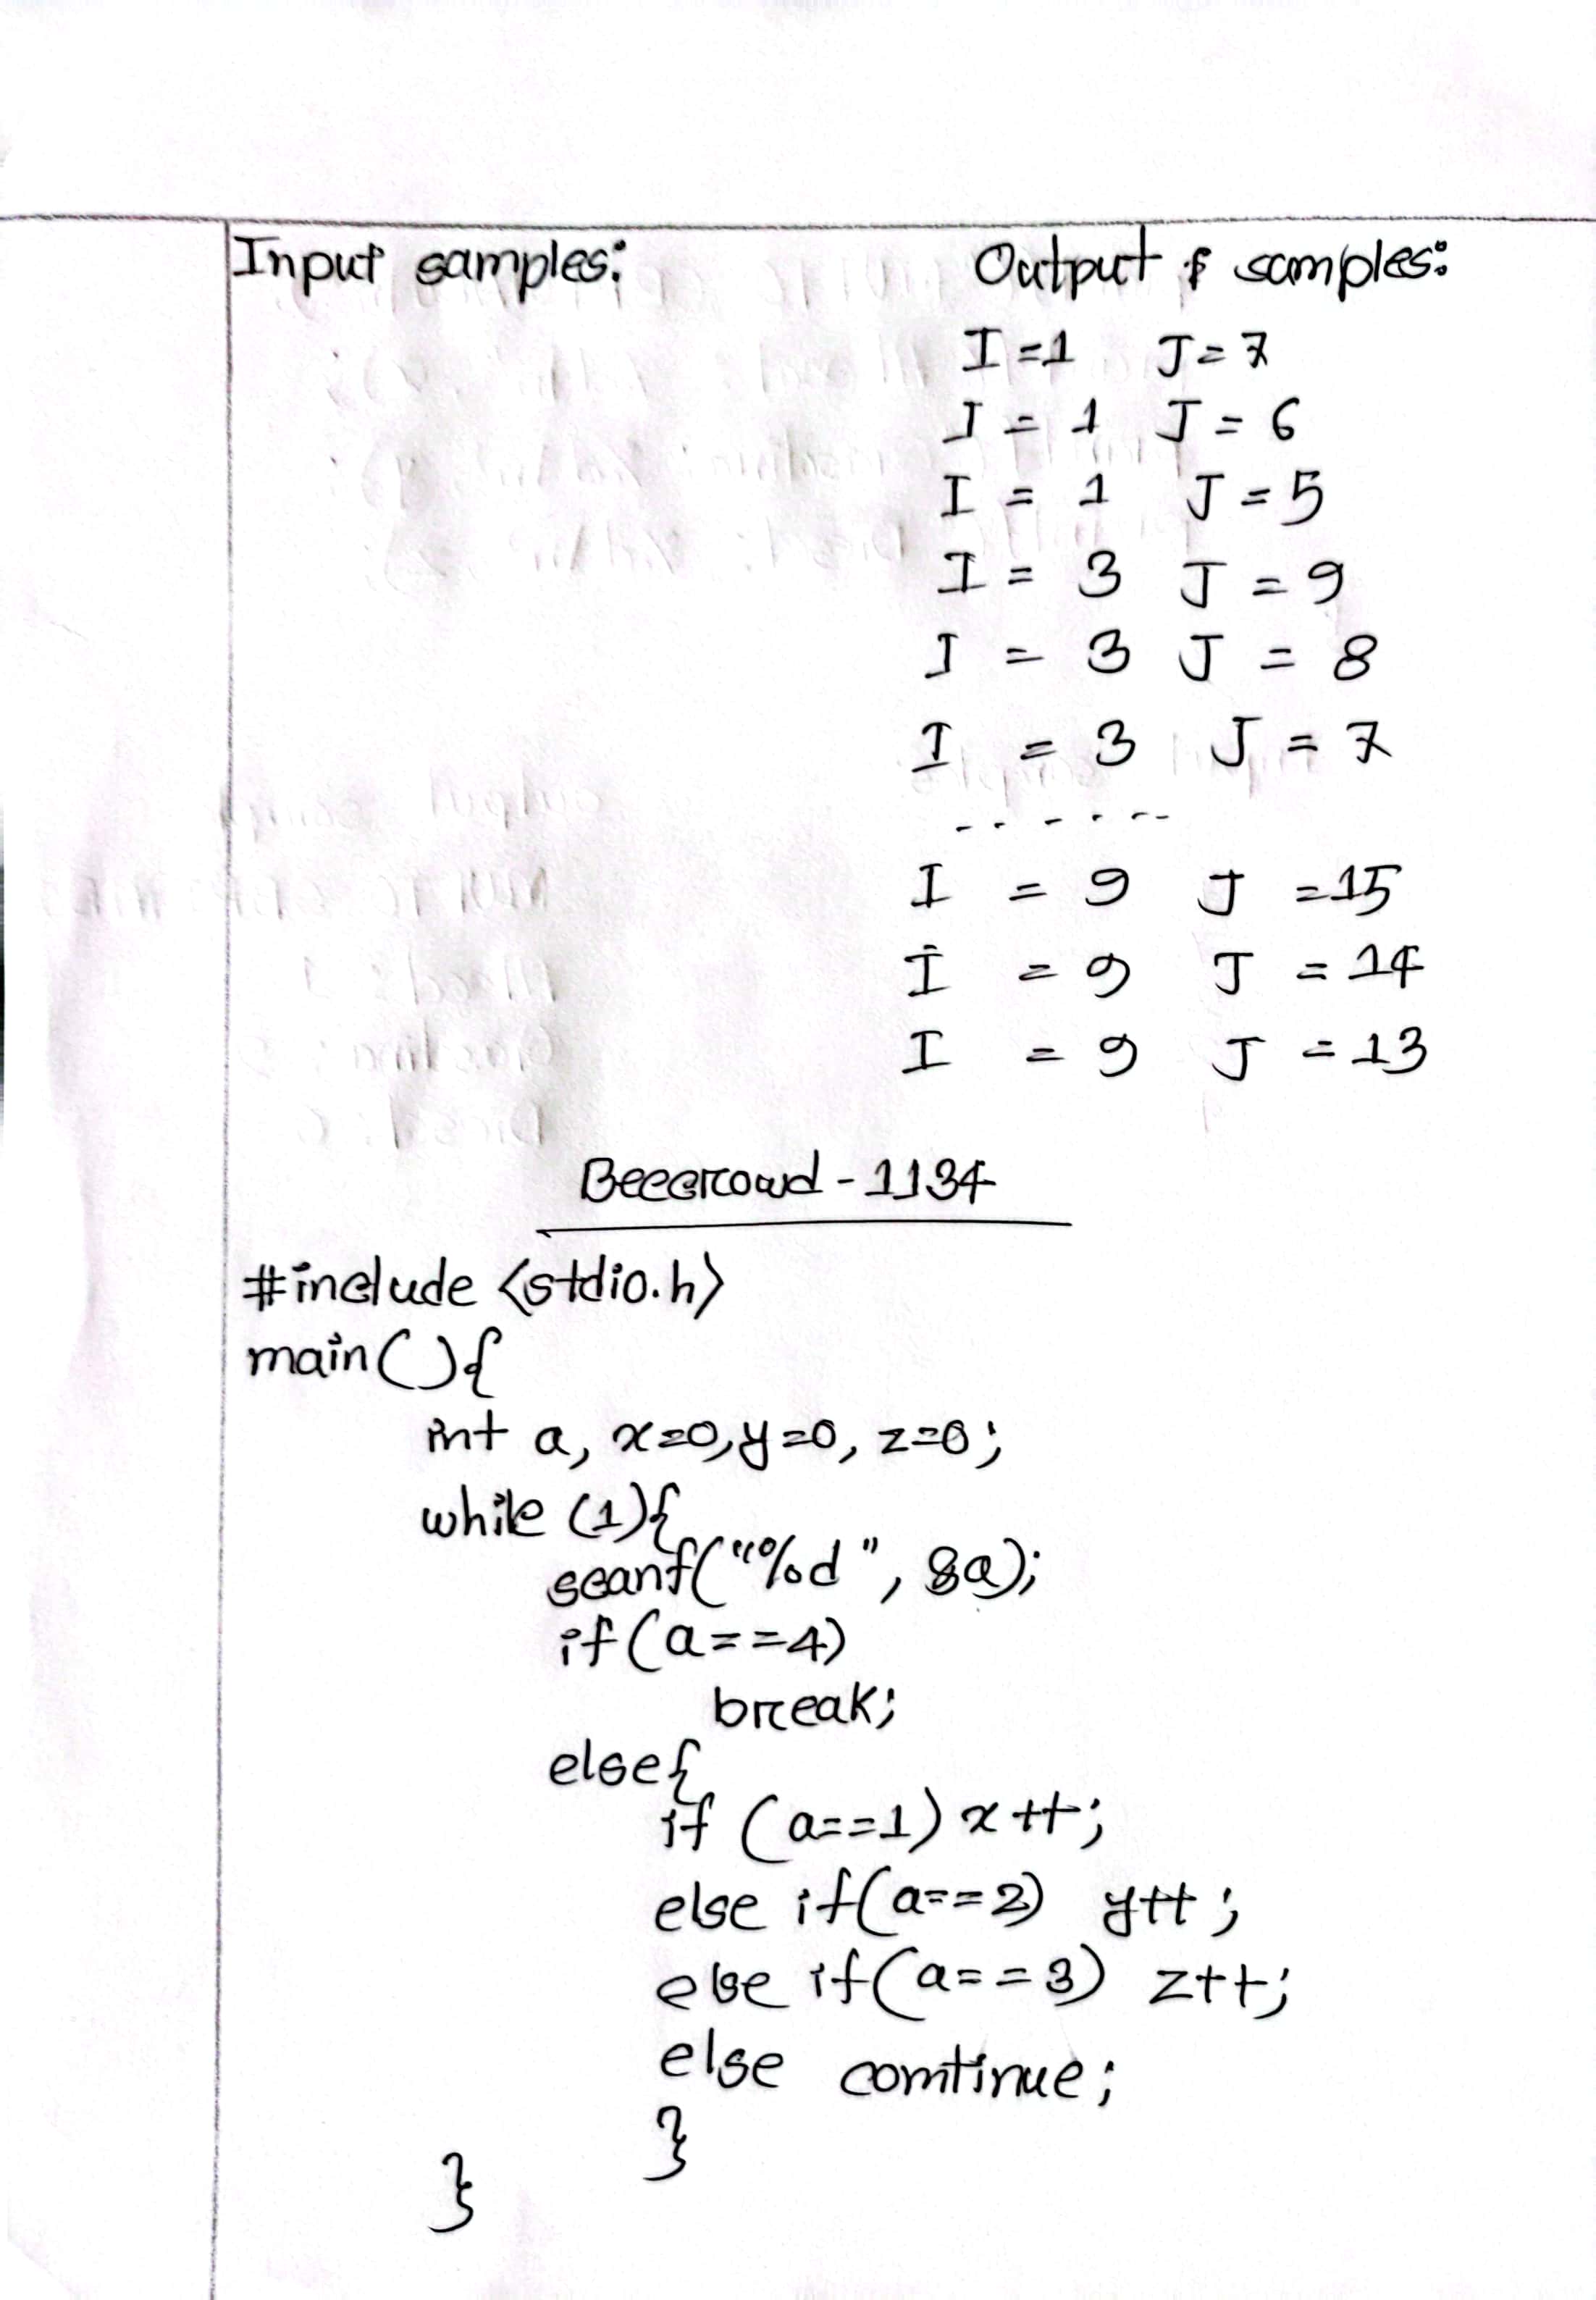 Input samples:
Output samples:
I = 1 J = 7
I = 1 J = 6
I = 1 J = 5
I = 3 J = 9
I = 3 J = 8
I = 3 J = 7
.......
I = 9 J = 15
I = 9 J = 14
I = 9 J = 13
Beecrowd - 1134
#include <stdio.h>
main(){
int a, x=0, y=0, z=0;
while (1){
scanf("%d", &a);
if (a==4)
break;
else{
if (a==1) x++;
else if(a==2) y++;
else if(a==3) z++;
else continue;
}
}